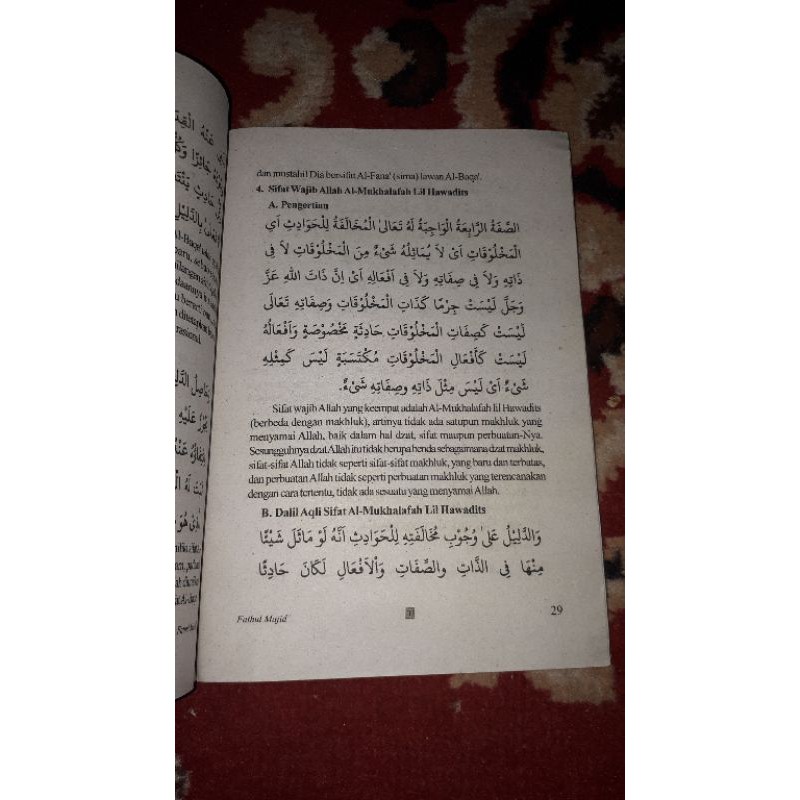 dan mustahil Dia bersifat Al-Fana' (sirna) lawan Al-Baqo'.
4. Sifat Wajib Allah Al-Mukhalafah Lil Hawadits
A. Pengertian
الصِّفَةُ الرَّابِعَةُ الْوَاجِبَةُ لَهُ تَعَالَى الْمُخَالَفَةُ لِلْحَوَادِثِ اَيِ
الْمَخْلُوْقَاتِ اَيْ لاَ يُمَاثِلُهُ شَيْءٌ مِنَ الْمَخْلُوْقَاتِ لاَ فِى
ذَاتِهِ وَلاَ فِى صِفَاتِهِ وَلاَ فِى اَفْعَالِهِ اَيْ اِنَّ ذَاتَ اللهِ عَزَّ
وَجَلَّ لَيْسَتْ جِرْمًا كَذَاتِ الْمَخْلُوْقَاتِ وَصِفَاتِهِ تَعَالَى
لَيْسَتْ كَصِفَاتِ الْمَخْلُوْقَاتِ حَادِثَةٍ مَخْصُوْصَةٍ وَاَفْعَالُهُ
لَيْسَتْ كَأَفْعَالِ الْمَخْلُوْقَاتِ مُكْتَسَبَةٍ لَيْسَ كَمِثْلِهِ
شَيْءٌ اَيْ لَيْسَ مِثْلَ ذَاتِهِ وصِفَاتِهِ شَيْءٌ.
Sifat wajib Allah yang keempat adalah Al-Mukhalafah lil Hawadits
(berbeda dengan makhluk), artinya tidak ada satupun makhluk yang
menyamai Allah, baik dalam hal dzat, sifat maupun perbuatan-Nya.
Sesungguhnya dzat Allah itu tidak berupa benda sebagaimana dzat makhluk,
sifat-sifat Allah tidak seperti sifat-sifat makhluk, yang baru dan terbatas,
dan perbuatan Allah tidak seperti perbuatan makhluk yang terencanakan
dengan cara tertentu, tidak ada sesuatu yang menyamai Allah.
B. Dalil Aqli Sifat Al-Mukhalafah Lil Hawadits
وَالدَّلِيْلُ عَلَى وُجُوْبِ مُخَالَفَتِهِ لِلْحَوَادِثِ اَنَّهُ لَوْ مَاثَلَ شَيْئًا
مِنْهَا فِى الذَّاتِ والصِّفَاتِ وَاْلاَفْعَالِ لَكَانَ حَادِثًا
Fathul Majid
29